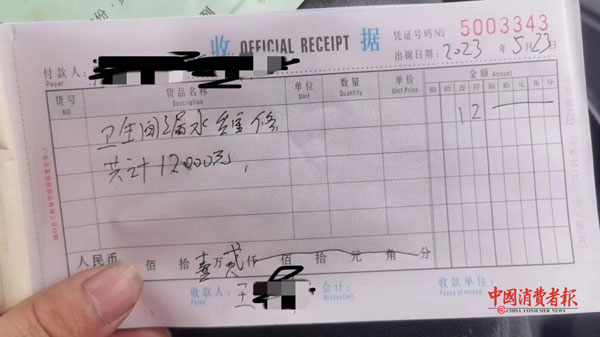 收 OFFICIAL RECEIPT 据
凭证号码№ 5003343
付款人：
Payer
出据日期：2023年5月23日
货号 货品名称 单位 数量 单价 金额 Amount
NO Description Unit Quantity Unit Price 佰 拾 万 仟 佰 拾 元 角 分
卫生间漏水维修 1 2
共计12000元，
人民币 佰 拾 壹万 贰仟 佰 拾 元 角 分
收款人：王 会计： 收款单位：
Payee Accountant
中国消费者报
CHINA CONSUMER NEWS